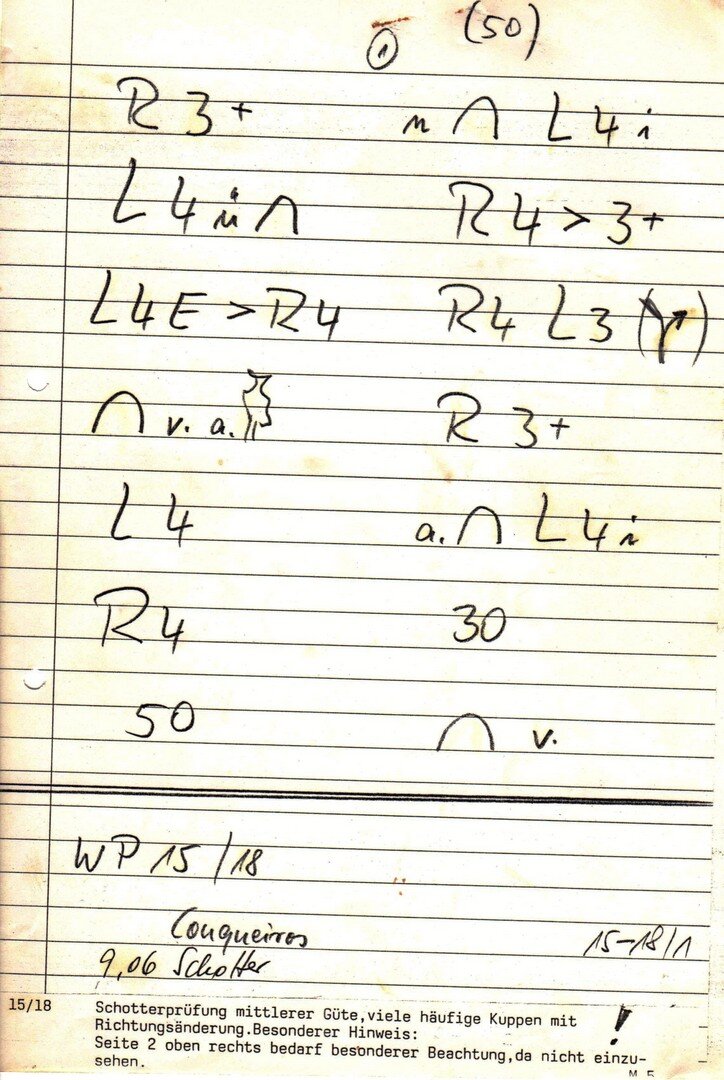 ①
(50)
R 3 +
L 4 ü ∩
L 4 E > R 4
∩ v. a.
L 4
R 4
50
n ∩ L 4 i
R 4 > 3 +
R 4 L 3 (
)
R 3 +
a. ∩ L 4 i
30
∩ v.
WP 15/18
Conqueiros
9,06 Schotter
15-18/1
15/18
Schotterprüfung mittlerer Güte,viele häufige Kuppen mit
Richtungsänderung.Besonderer Hinweis:
Seite 2 oben rechts bedarf besonderer Beachtung,da nicht einzu-
sehen.
!